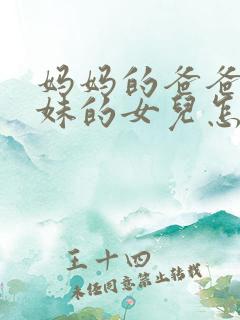 妈妈的爸爸
妹的女兒怎
王十四
未经同意禁止转载